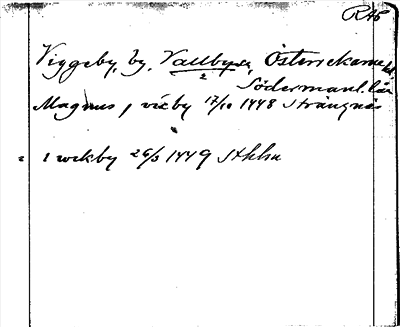 RAÖ
Viggeby, by, Vallby sn, Österrekarne hd,
Södermanl. län
Magnus j vicby 17/10 1448 Strängnäs
i wikby 26/3 1449 Sthlm